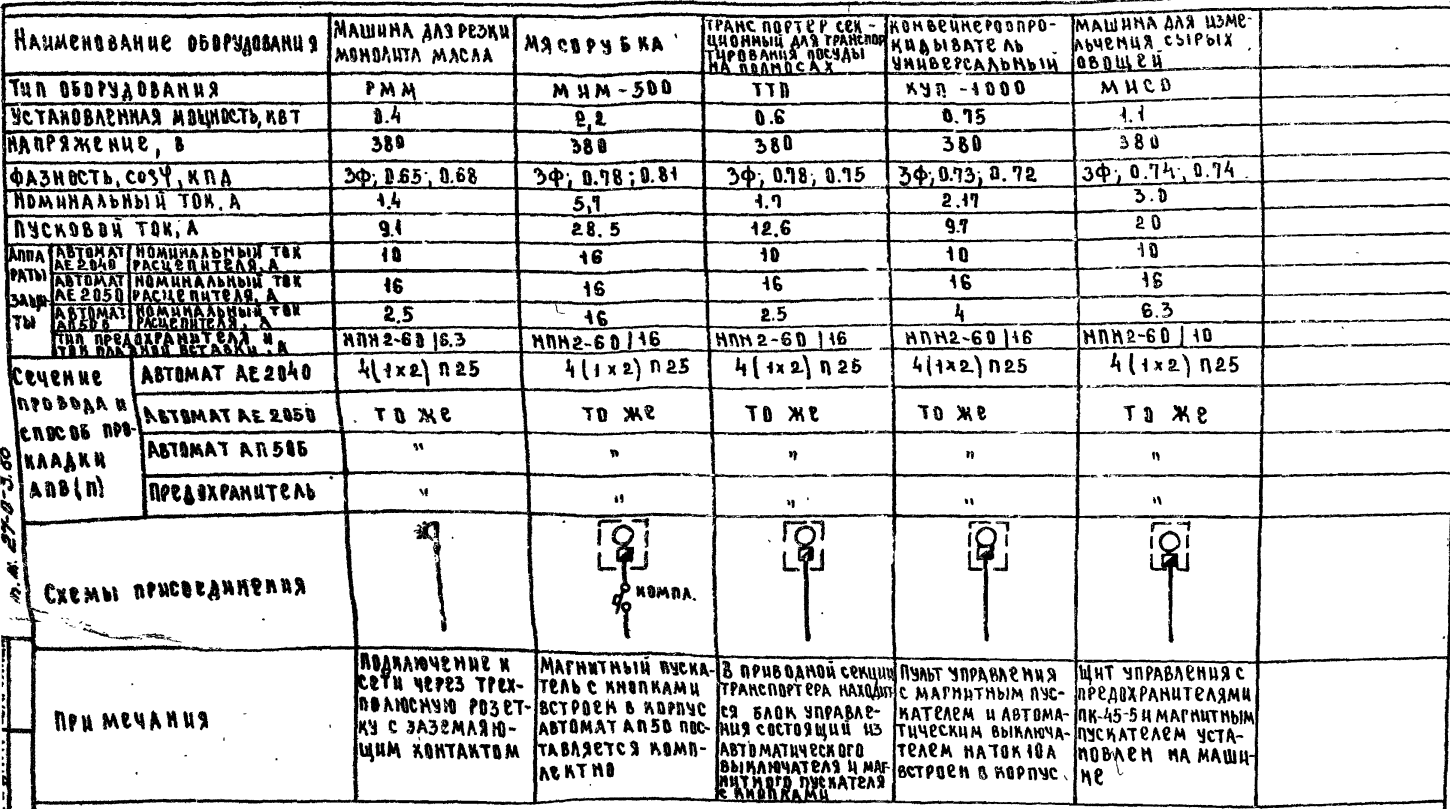 Наименование оборудования | Машина для резки монолита масла | Мясорубка | Транспортер секционный для транспортирования посуды на подносах | Конвейнероопрокидыватель универсальный | Машина для измельчения сырых овощей
Тип оборудования | РММ | МИМ-500 | ТТП | КУП-1000 | МИСО
Установленная мощность, квт | 0.4 | 2,2 | 0.6 | 0.75 | 1.1
Напряжение, в | 380 | 380 | 380 | 380 | 380
Фазность, cosφ, кпд | 3Ф; 0.65; 0.68 | 3Ф; 0.78; 0.81 | 3Ф; 0.78; 0.75 | 3Ф; 0.73; 0.72 | 3Ф; 0.74; 0.74
Номинальный ток, А | 1.4 | 5,7 | 1.7 | 2.17 | 3.0
Пусковой ток, А | 9.1 | 28.5 | 12.6 | 9.7 | 20
Аппараты защиты | Автомат АЕ2040 | Номинальный ток расцепителя, А | 10 | 16 | 10 | 10 | 10
Автомат АЕ2050 | Номинальный ток расцепителя, А | 16 | 16 | 16 | 16 | 16
Автомат АП50Б | Номинальный ток расцепителя, А | 2.5 | 16 | 2.5 | 4 | 6.3
Тип предохранителя и ток плавкой вставки, А | НПН2-60 | 6.3 | НПН2-60 | 16 | НПН2-60 | 16 | НПН2-60 | 16 | НПН2-60 | 10
Сечение провода и способ прокладки АПВ(п) | Автомат АЕ2040 | 4(1х2) п25 | 4(1х2) п25 | 4(1х2) п25 | 4(1х2) п25 | 4(1х2) п25
Автомат АЕ2050 | То же | То же | То же | То же | То же
Автомат АП50Б | " | " | " | " | "
Предохранитель | " | " | " | " | "
Схемы присоединения
компл.
Примечания
Подключение к
сети через трех-
полюсную розет-
ку с заземляю-
щим контактом
Магнитный пуска-
тель с кнопками
встроен в корпус
Автомат АП50 пос-
тавляется комп-
лектно
В приводной секции
транспортера находит-
ся блок управле-
ния состоящий из
автоматического
выключателя и маг-
нитного пускателя
с кнопками
Пульт управления
с магнитным пус-
кателем и автома-
тическим выключа-
телем на ток 10А
встроен в корпус.
Щит управления с
предохранителями
ПК-45-5 и магнитным
пускателем уста-
новлен на маши-
не
т.м. 27-0-3.60